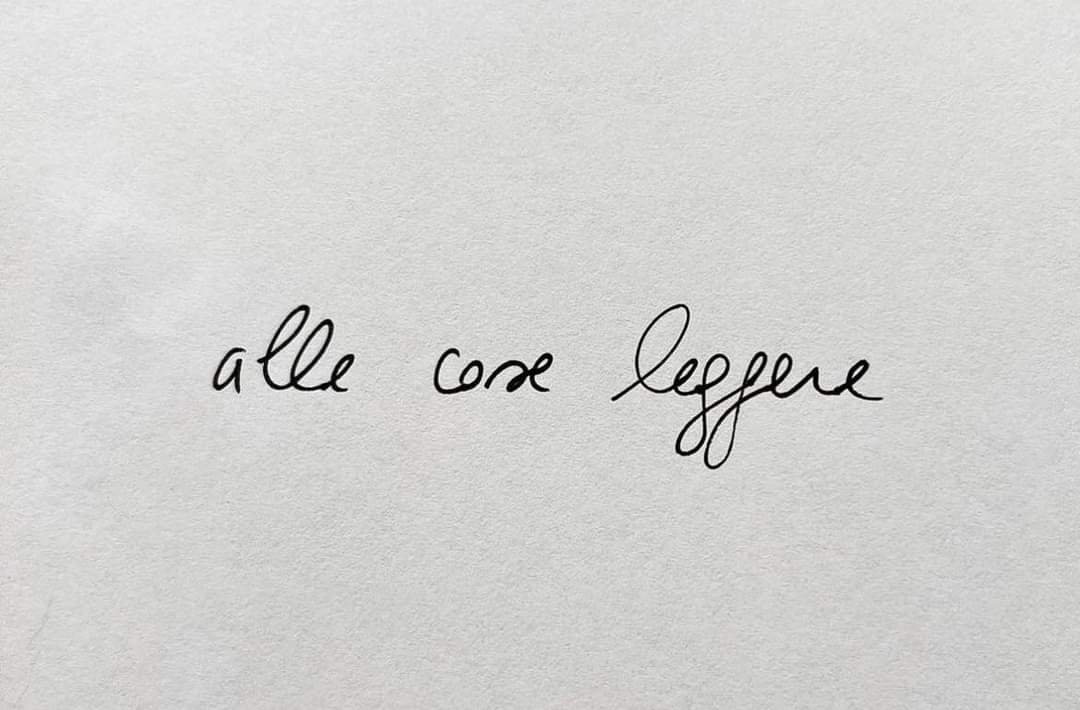 alle cose leggere